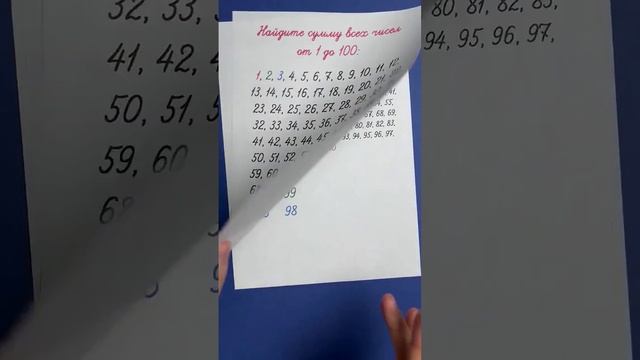 32, 33, 3
41, 42, 4
50, 51, 5
59, 60
Найдите сумму всех чисел
от 1 до 100:
1, 2, 3, 4, 5, 6, 7, 8, 9, 10, 11, 12,
13, 14, 15, 16, 17, 18, 19, 20, 21,
23, 24, 25, 26, 27, 28, 29, 41,
32, 33, 34, 35, 36, 37, 55,
67, 68, 69,
41, 42, 43, 44, 45, 80, 81, 82, 83,
94, 95, 96, 97,
50, 51, 52,
59, 60
99
98
80, 81, 82, 83,
94, 95, 96, 97,